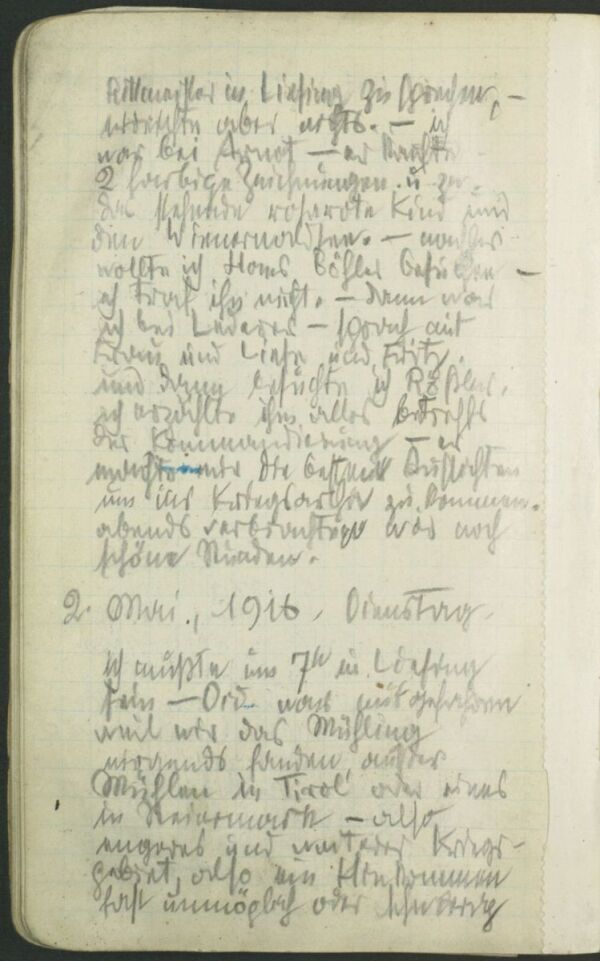 Rittmeister in Liesing zu sprechen, –
erreichte aber nichts. – ich
war bei Arnot – er kaufte
2 farbige Zeichnungen. u. zw.
das stehende rosarote Kind und
den Wienerwaldsee. – nachher
wollte ich Hans Böhler besuchen –
ich traf ihn nicht. – dann war
ich bei Lederer – sprach mit
Frau und Liese und Fritz.
und dann besuchte ich Rößler,
ich erzählte ihm alles betreffs
der Kommandierung – er
machte mir die besten Aussichten
um ins Kriegsarchiv zu kommen.
abends verbrachten wir noch
schöne Stunden.
2. Mai., 1916, Dienstag.
ich mußte um 7h in Liesing
sein – war mitgefahren
weil wir das Mühling
nirgends fanden außer
Mühlen in Tirol oder eines
in Steiermark – also
engeres und weiteres Kriegs-
gebiet, also ein Hinkommen
fast unmöglich oder schwierig